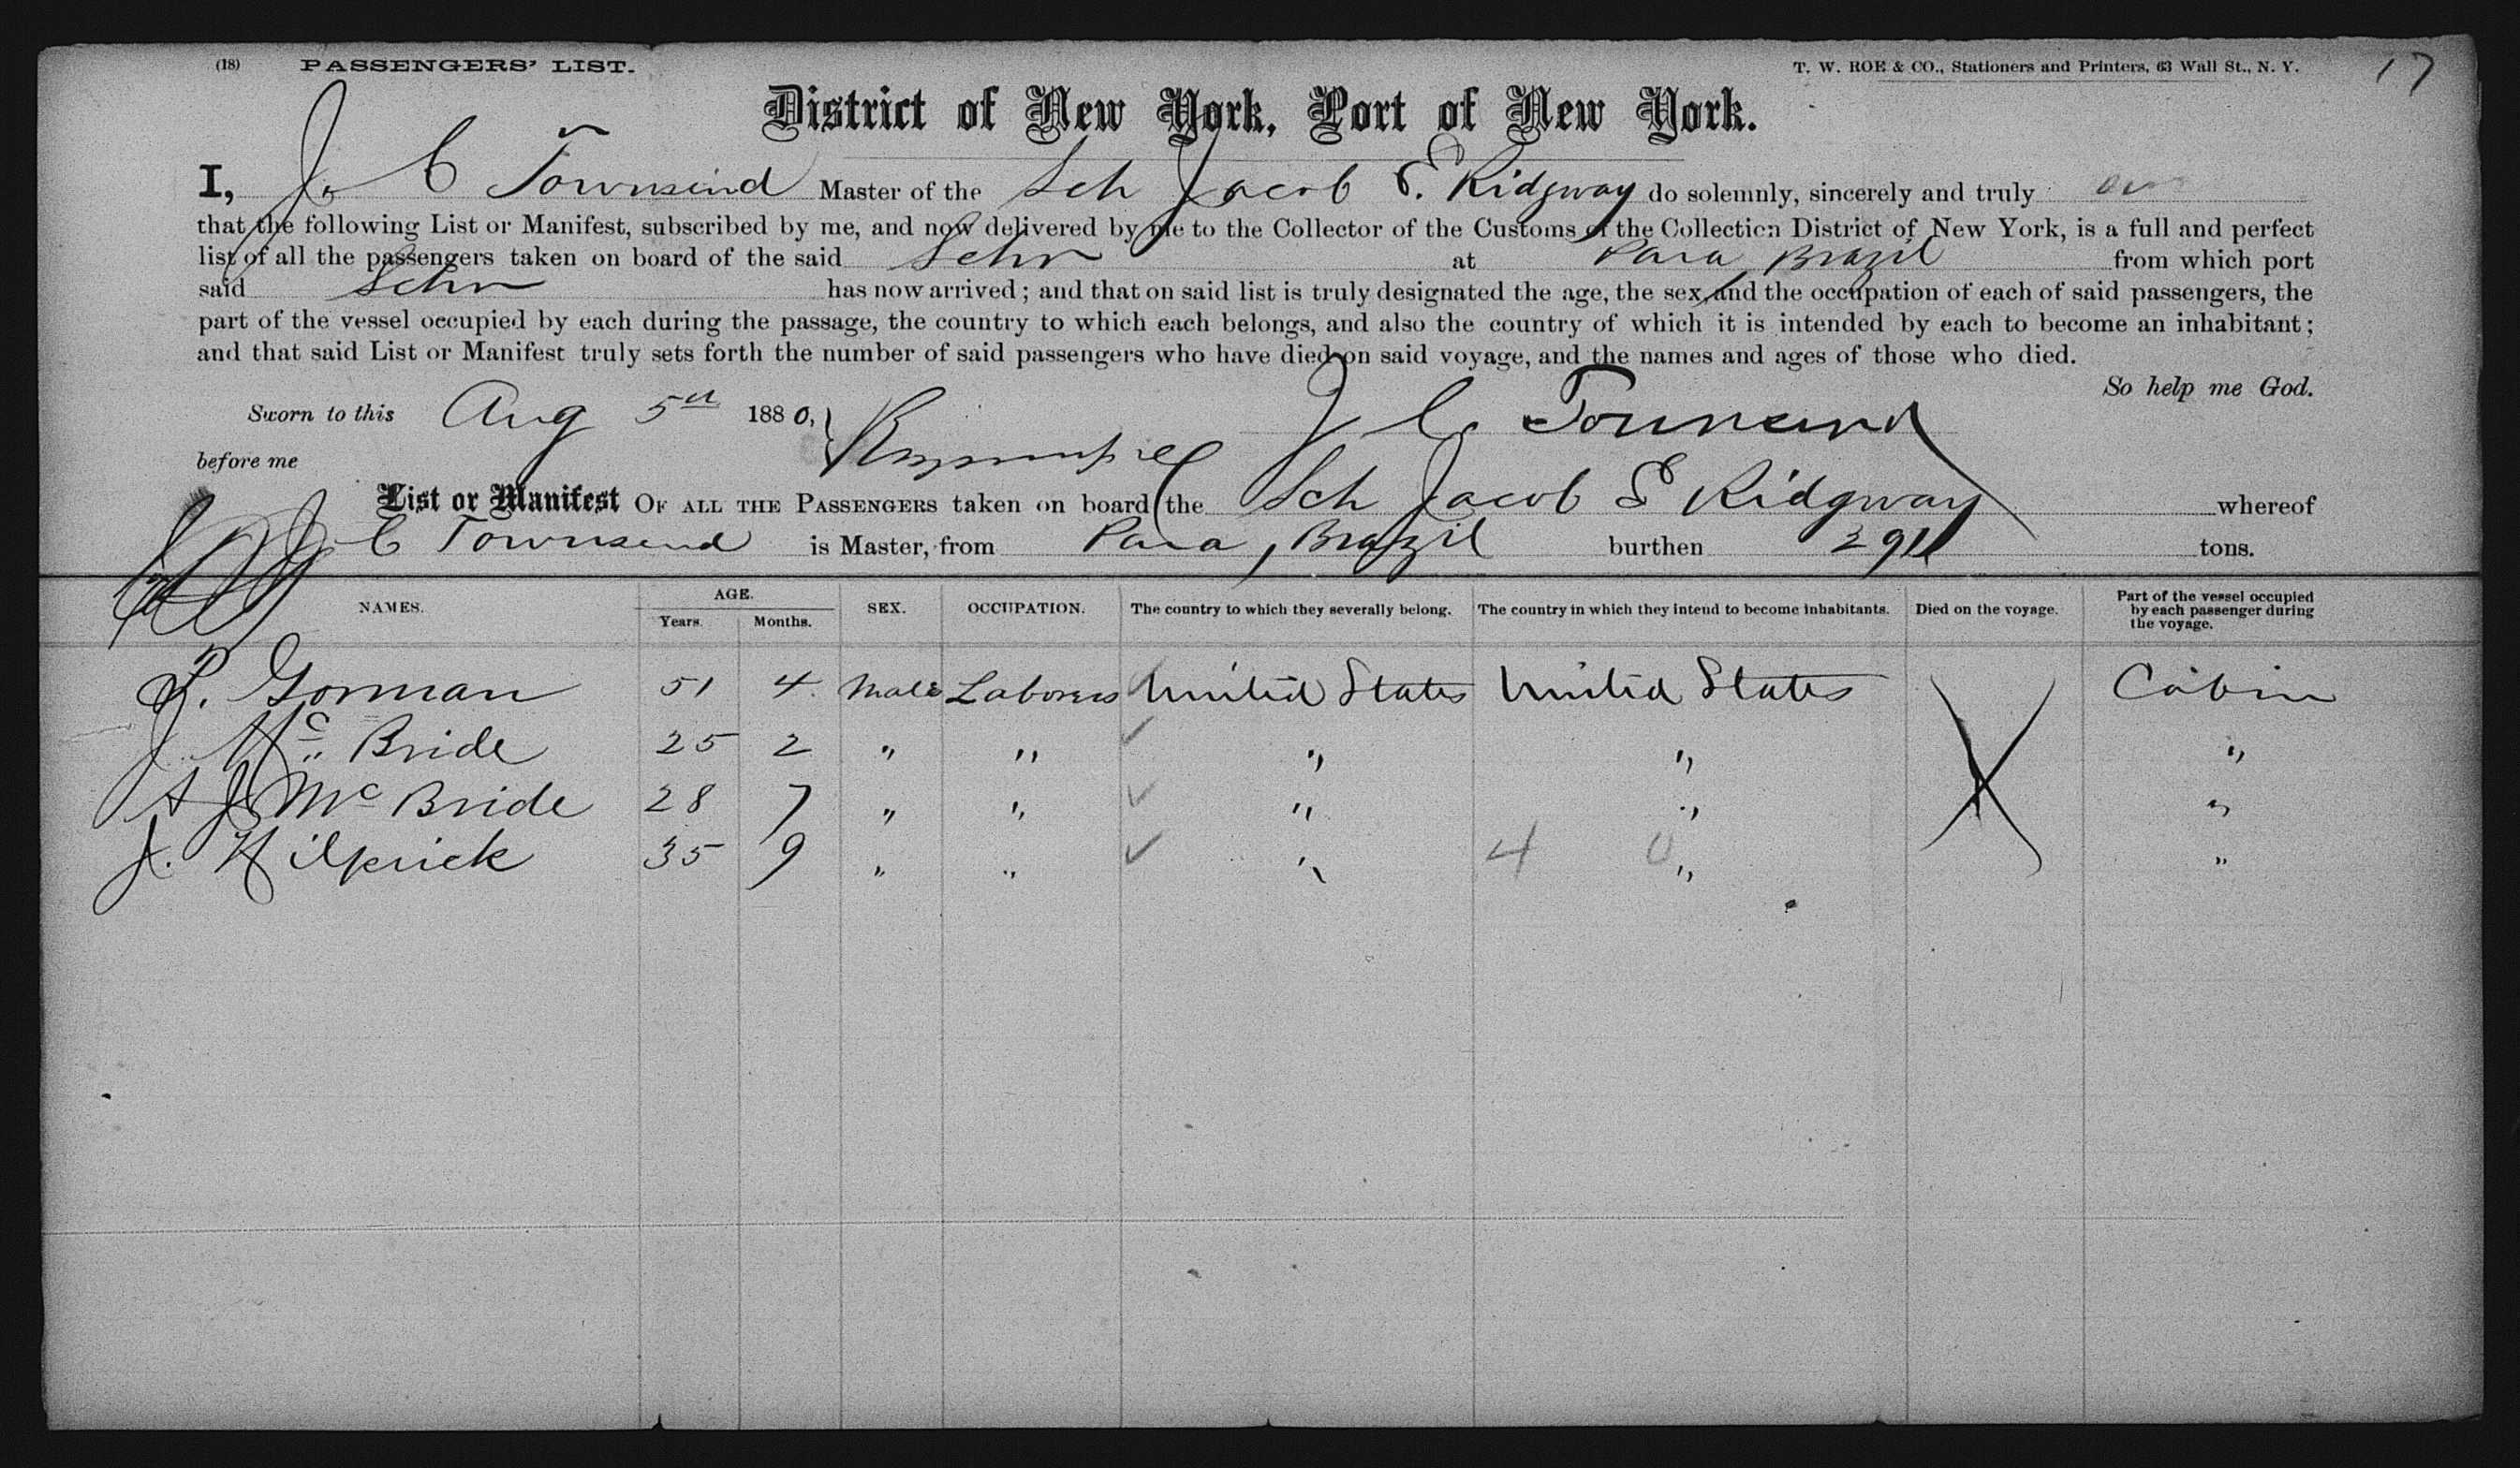 (18) PASSENGERS' LIST. T. W. ROE & CO., Stationers and Printers, 63 Wall St., N. Y. 17
District of New York, Port of New York.
I, J. C Townsend Master of the Sch Jacob E. Ridgway do solemnly, sincerely and truly
that the following List or Manifest, subscribed by me, and now delivered by me to the Collector of the Customs of the Collection District of New York, is a full and perfect
list of all the passengers taken on board of the said Schr at Para, Brazil from which port
said Schr has now arrived; and that on said list is truly designated the age, the sex, and the occupation of each of said passengers, the
part of the vessel occupied by each during the passage, the country to which each belongs, and also the country of which it is intended by each to become an inhabitant;
and that said List or Manifest truly sets forth the number of said passengers who have died on said voyage, and the names and ages of those who died.
So help me God.
Sworn to this Aug 5th 1880, J C. Townsend
before me
List or Manifest OF ALL THE PASSENGERS taken on board the Sch Jacob E Ridgway whereof
J C Townsend is Master, from Para, Brazil burthen tons.
NAMES. AGE. Years. Months. SEX. OCCUPATION. The country to which they severally belong. The country in which they intend to become inhabitants. Died on the voyage. Part of the vessel occupied by each passenger during the voyage.
P. Gorman 51 4 Male Laborers United States United States Cabin
J. Mc Bride 25 2 " " " " "
A J Mc Bride 28 7 " " " " "
J. Kilprick 35 9 " " " 4 0 " "